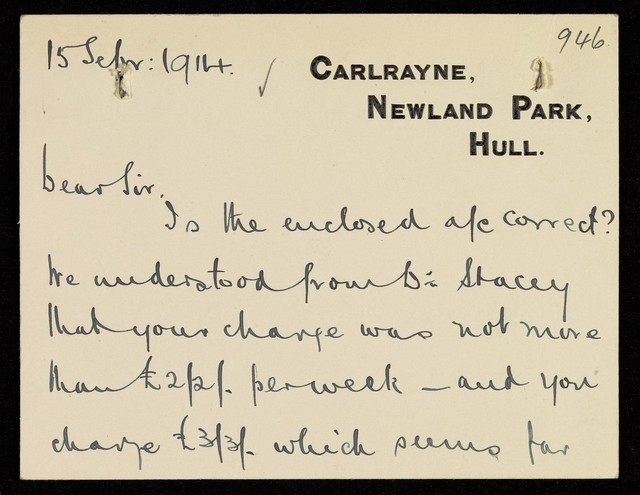 946
15 Sepr: 1914.
CARLRAYNE,
NEWLAND PARK,
HULL.
Dear Sir.
Is the enclosed a/c correct?
We understood from Dr. Stacey
that your charge was not more
than £2/2/- per week – and you
charge £3/3/- which seems far